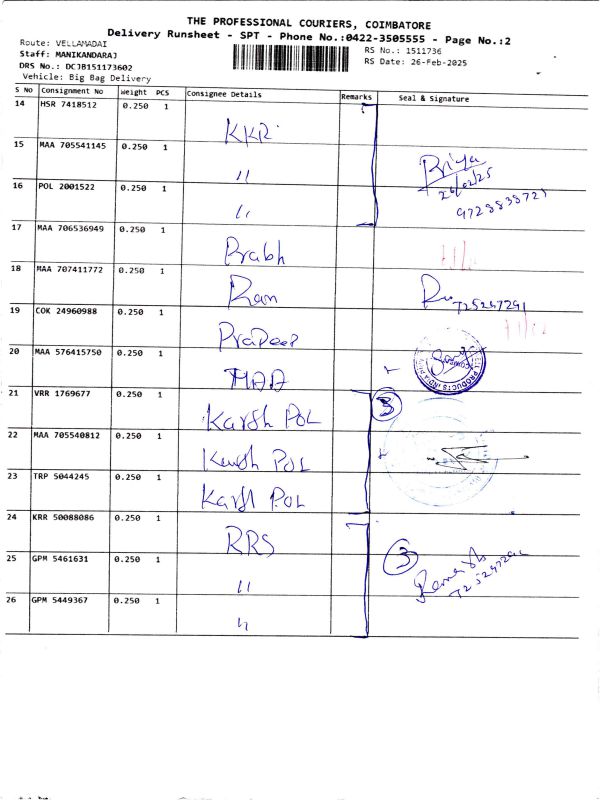 THE PROFESSIONAL COURIERS, COIMBATORE
Delivery Runsheet - SPT - Phone No.:0422-3505555 - Page No.:2
Route: VELLAMADAI
RS No.: 1511736
Staff: MANIKANDARAJ
RS Date: 26-Feb-2025
DRS No.: DCJB151173602
Vehicle: Big Bag Delivery
S No Consignment No Weight PCS Consignee Details Remarks Seal & Signature
14 HSR 7418512 0.250 1 KKR
15 MAA 705541145 0.250 1 "
Priya
26/02/25
16 POL 2001522 0.250 1 "
9728838721
17 MAA 706536949 0.250 1 Prabh
18 MAA 707411772 0.250 1 Ram
19 COK 24960988 0.250 1 Pradeep
20 MAA 576415750 0.250 1
21 VRR 1769677 0.250 1 Karsh POL
3
22 MAA 705540812 0.250 1 Karsh POL
23 TRP 5044245 0.250 1 Karsh POL
24 KRR 50088086 0.250 1 RRS
3
25 GPM 5461631 0.250 1 "
26 GPM 5449367 0.250 1 "